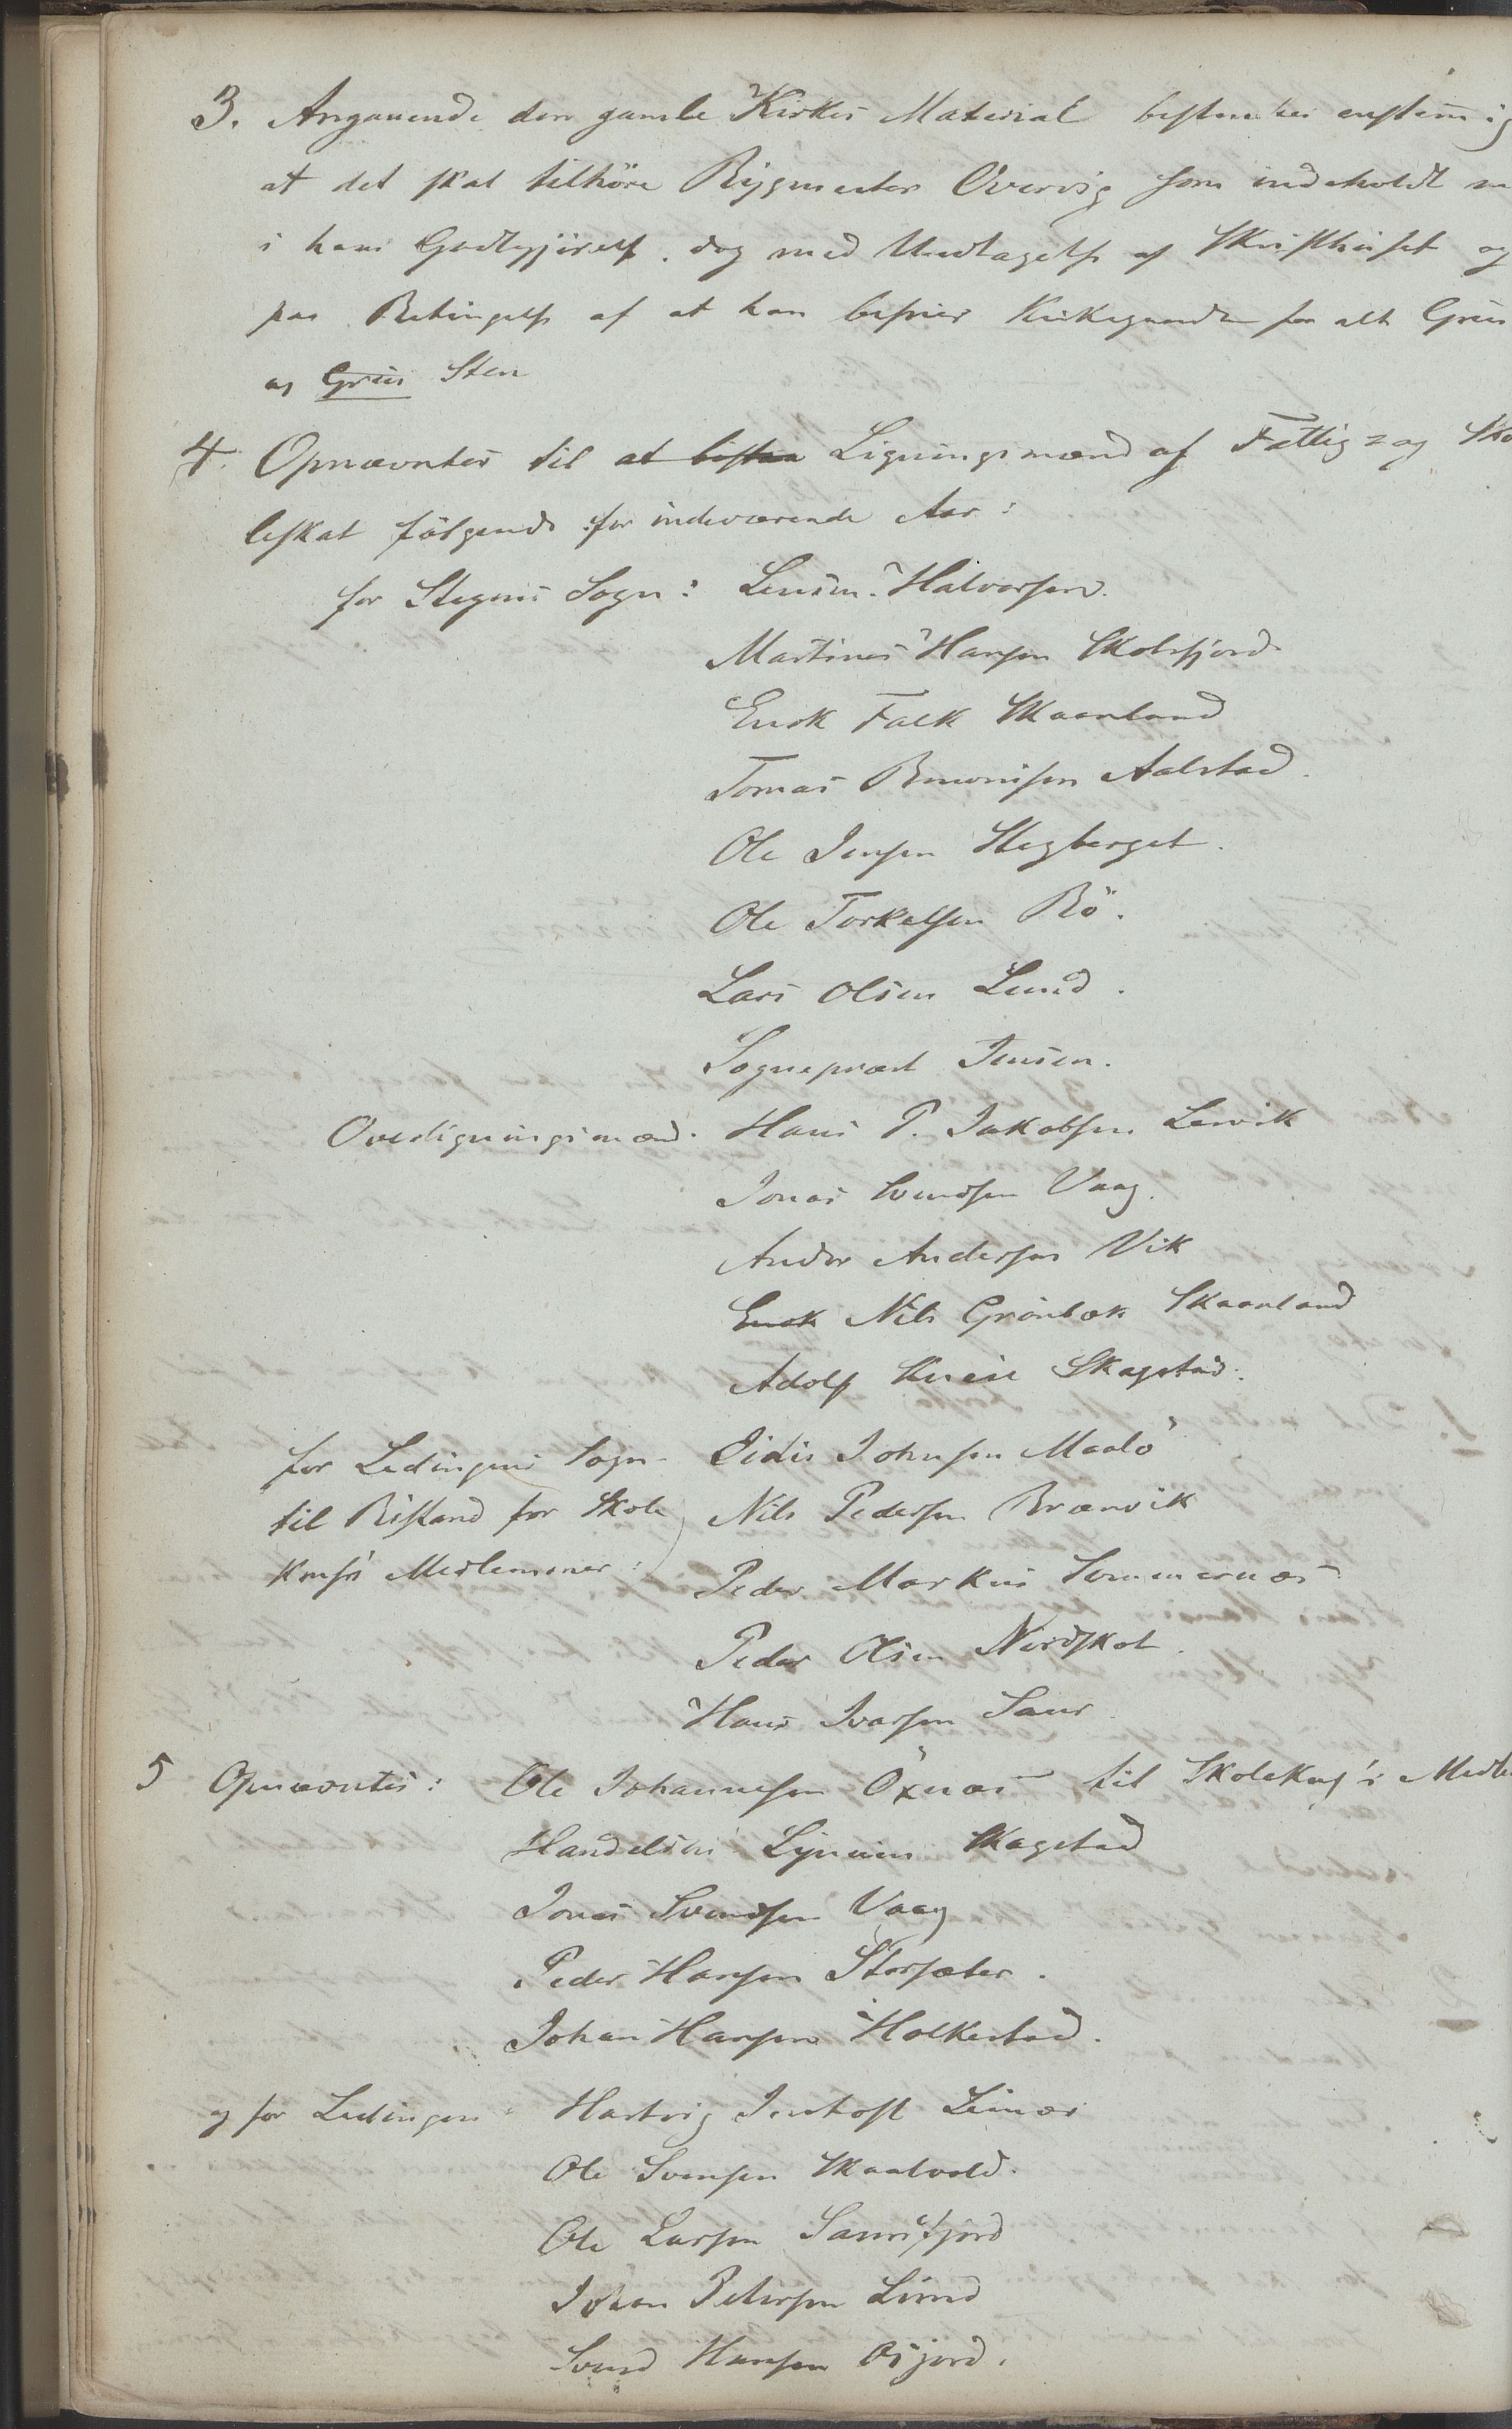 3. Angaaende den gamle Kirkes Material bestemtes enstemig
at det skal tilhöre Bygmester Overvig som indeholdt
i hans Godtgjörelse, dog med Undtagelse af Skrifthuset og
paa Betingelse af at han befrier Kirkegaarden for alt Gruus
og Gruus Sten
4. Opnævntes til at bistaa Ligningsmænd af Fattig- og Sko
leskat fölgende for indeværende Aar:
for Stegens Sogn: Lensm. Halvorsen.
Martinus Hansen Skotsfjord
Enok Falk Skaanland
Tomas Aalstad.
Ole Jensen Stegberget.
Ole Torkelsen Bö.
Lars Olsen Lund.
Sogneprest Jensen.
Overligningsmænd. Hans P. Jakobsen Lervik
Jonas Svendsen Vaag.
Andor Andersen Vik
Enok Nils Grönbæk Skaanland
Adolf Skagstad.
for Ledingens Sogn Eidis Johnsen Maalö
til Bistand for Skole Nils Pedersen Brænvik
Koms's Medlemmer: Peder Markus Sommernæs
Peder Olsen Nordskot.
Hans Ivarsen Saur
5 Opnævntes: Ole Johannesen Öxnæs til Skolekms's Medle
Handelsm Skagstad
Jonas Svendsen Vaag
Peder Hansen Storsæter.
Johan Hansen Holkestad.
og for Ledingen: Hartvig Jentoft Leinæs
Ole Svensen Skaalvold.
Ole Larsen Saursfjord
Johan Petersen Lund
Svend Hansen Osjord.